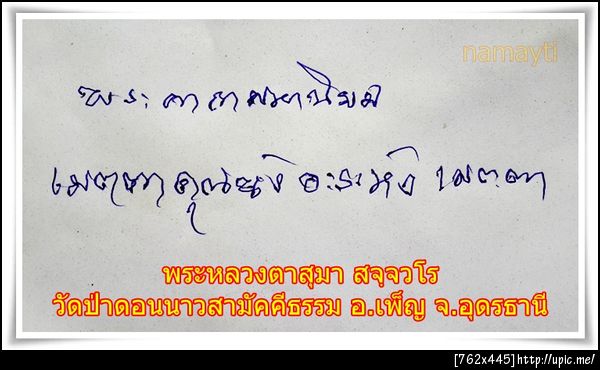 namayti
พระคาถามหานิยม
เมตตาคุณณัง อะระหัง เมตตา
พระหลวงตาสุมา สจฺจวโร
วัดป่าดอนนาวสามัคคีธรรม อ.เพ็ญ จ.อุดรธานี
[762x445]http://upic.me/